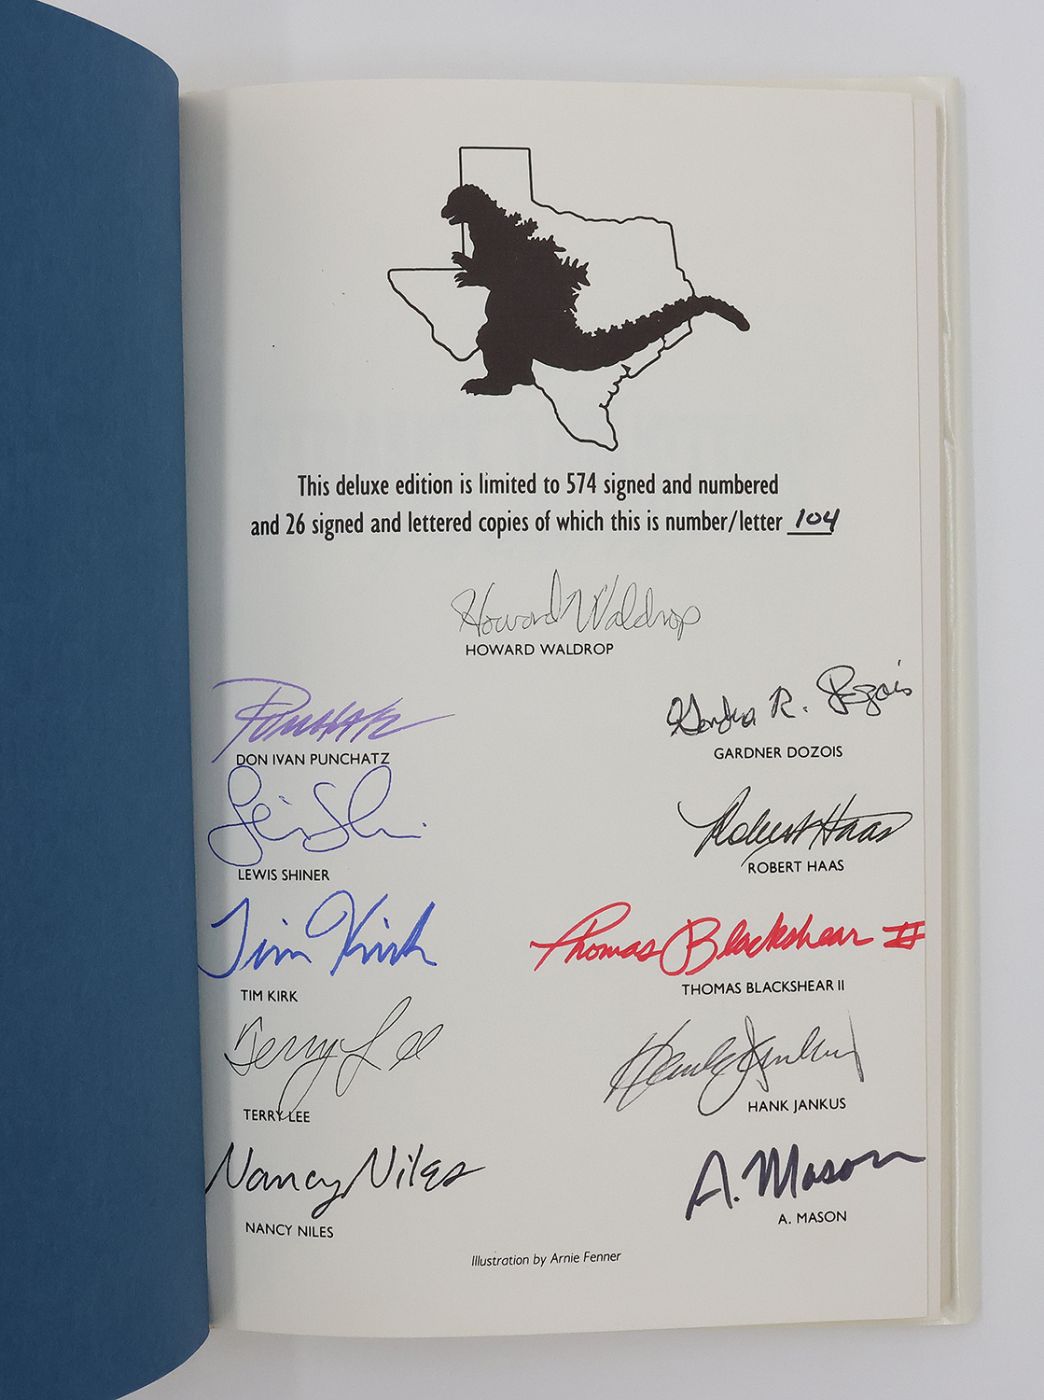 This deluxe edition is limited to 574 signed and numbered
and 26 signed and lettered copies of which this is number/letter 104
Howard Waldrop
HOWARD WALDROP
Punchatz
DON IVAN PUNCHATZ
Gardner R. Dozois
GARDNER DOZOIS
Lewis Shiner
LEWIS SHINER
Robert Haas
ROBERT HAAS
Tim Kirk
TIM KIRK
Thomas Blackshear II
THOMAS BLACKSHEAR II
Terry Lee
TERRY LEE
Hank Jankus
HANK JANKUS
Nancy Niles
NANCY NILES
A. Mason
A. MASON
Illustration by Arnie Fenner